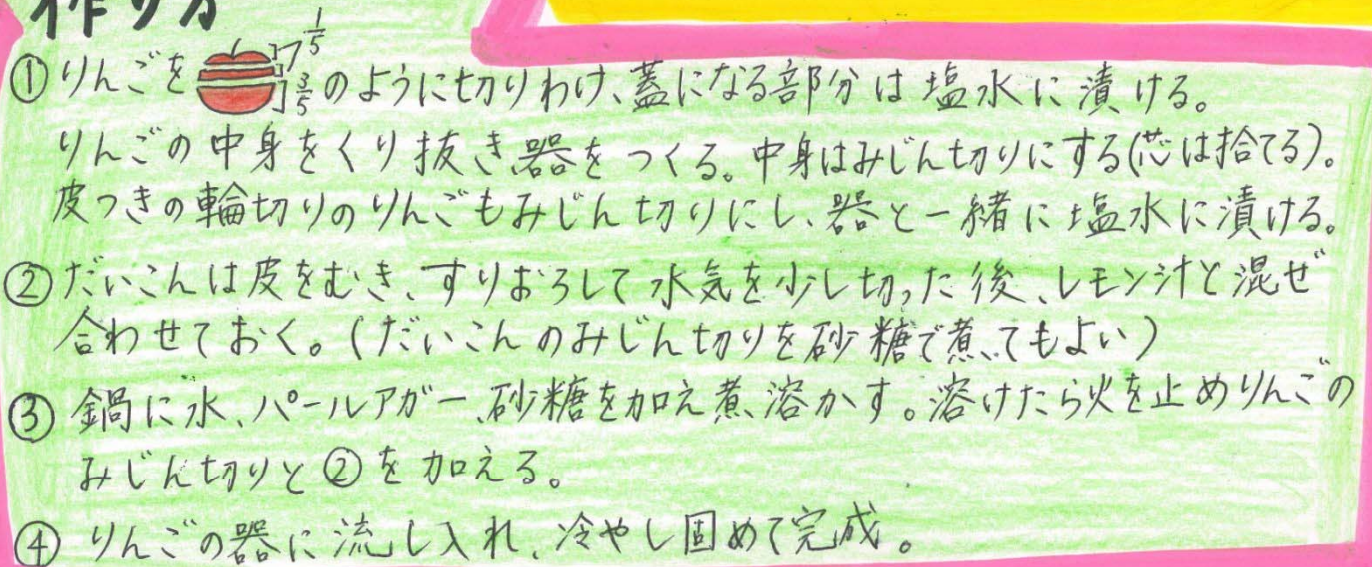 作り方
①りんごを 1/5 3/5 のように切りわけ、蓋になる部分は塩水に漬ける。
りんごの中身をくり抜き器をつくる。中身はみじん切りにする(芯は捨てる)。
皮つきの輪切りのりんごもみじん切りにし、器と一緒に塩水に漬ける。
②だいこんは皮をむき、すりおろして水気を少し切った後、レモン汁と混ぜ
合わせておく。(だいこんのみじん切りを砂糖で煮てもよい)
③鍋に水、パールアガー、砂糖を加え煮溶かす。溶けたら火を止めりんごの
みじん切りと②を加える。
④りんごの器に流し入れ、冷やし固めて完成。